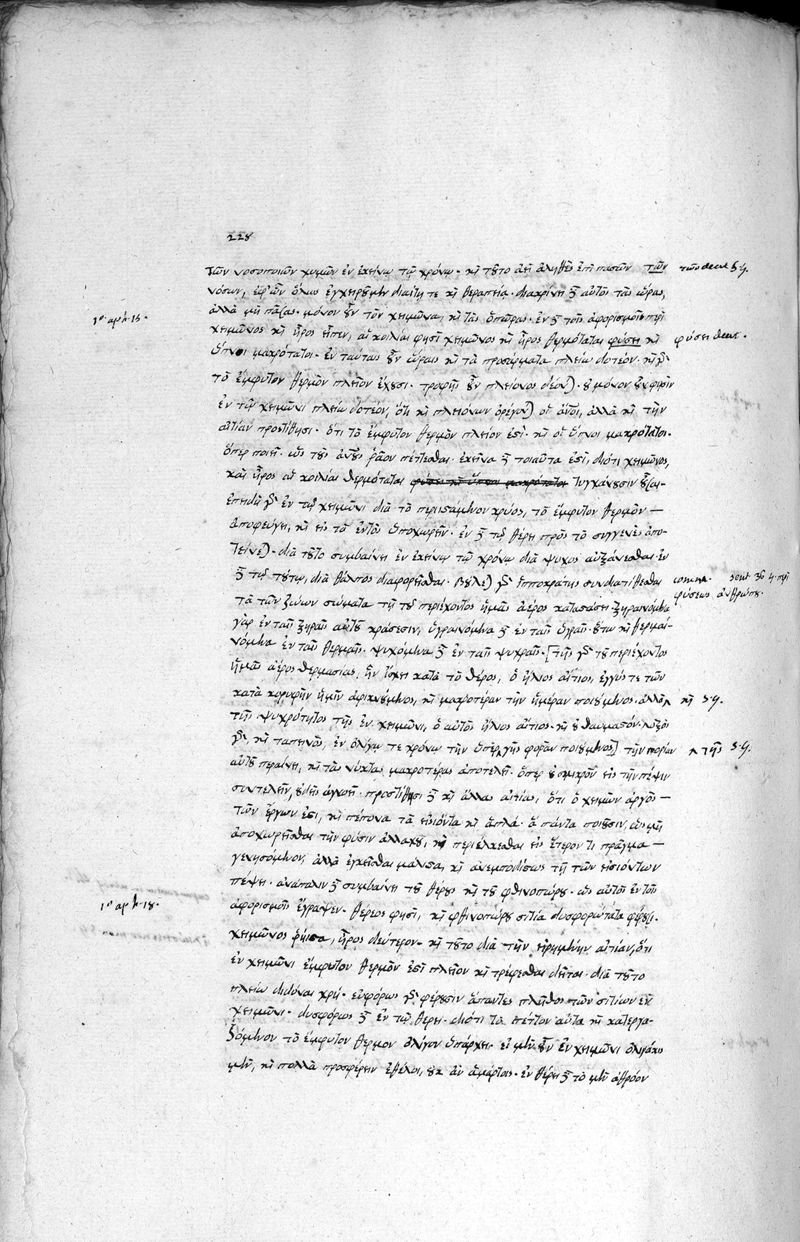 228
τῶν νοσοποιῶν χυμῶν ἐν ἐκείνῳ τῷ χρόνῳ. καὶ τοῦτο ἀεὶ ἀληθὲς ἐπὶ πασῶν τῶν
τῶν deest
νόσων, ἐφ' ὧν ὅλως ἐγχειροῦμεν διαίτῃ τε καὶ θεραπείᾳ. διακρίνει δὲ αὐτὸς τὰς ὥρας,
1º aph. 15.
ἀλλὰ μὴ πάσας. μόνον οὖν τὸν χειμῶνα, καὶ τὰς ὀπώρας. ἐν δὲ τοῖς ἀφορισμοῖς περὶ
χειμῶνος καὶ ἦρος εἶπεν, αἱ κοιλίαι φησὶ χειμῶνος καὶ ἦρος θερμόταται φύσει καὶ
φύσει deest.
ὕπνοι μακρότατοι. ἐν ταύταις οὖν ὥραις καὶ τὰ προσάρματα πλείω δοτέον. καὶ γὰρ
τὸ ἔμφυτον θερμὸν πλεῖον ἔχουσι. τροφῆς οὖν πλείονος δέον). οὐ μόνον
ἐν τῷ χειμῶνι πλείω δοτέον, ὅτι καὶ πλειόνων ὀρέγον) οἱ ἄνοι, ἀλλὰ καὶ τὴν
αἰτίαν προστίθησι. ὅτι τὸ ἔμφυτον θερμὸν πλεῖόν ἐστι. καὶ οἱ ὕπνοι μακρότατοι.
ὅπερ ποιεῖ ὡς τοὺς ἀνους ῥᾷον πέττεσθαι. ἐκεῖνα δὲ τοιαῦτά ἐστι, διότι χειμῶνος,
καὶ ἦρος αἱ κοιλίαι θερμόταται φύσει καὶ ὕπνοι μακρότατοι τυγχάνουσιν οὖσαι.
ἐπειδὴ γὰρ ἐν τῷ χειμῶνι διὰ τὸ περικείμενον κρύος, τὸ ἔμφυτον θερμὸν —
ἀποφεύγει, καὶ εἰς τὸ ἐντὸς ὑποχωρεῖ. ἐν δὲ τῷ θέρει πρὸς τὸ συγγενὲς ἀπο-
τείνε). διὰ τοῦτο συμβαίνει ἐν ἐκείνῳ τῷ χρόνῳ διὰ ψῦχος αὐξάνεσθαι ἐν
δὲ τῷ τούτῳ, διὰ θάλπος διαφορεῖσθαι. βούλε) γὰρ Ἱπποκράτης συνδιατίθεσθαι
comm. sent 36 4 περὶ
φύσεως ἀνθρώπου.
τὰ τῶν ζώων σώματα τῇ τοῦ περιέχοντος ἡμᾶς ἀέρος καταστάσει. ξηραινόμενα
γὰρ ἐν ταῖς ξηραῖς αὐτοῦ κράσεσιν, ὑγραινόμενα δὲ ἐν ταῖς ὑγραῖς. οὕτω καὶ θερμαι-
νόμενα ἐν ταῖς θερμαῖς. ψυχόμενα δὲ ἐν ταῖς ψυχραῖς. [τῆς γὰρ τοῦ περιέχοντος
ἡμᾶς ἀέρος θερμασίας, ἣν ἴσχει κατὰ τὸ θέρος, ὁ ἥλιος αἴτιος, ἐγγύς τε τῶν
κατὰ κορυφὴν ἡμῖν ἀφικνούμενος, καὶ μακροτέραν τὴν ἡμέραν ποιούμενος. ἀλλὰ
καὶ
τῆς ψυχρότητος τῆς ἐν χειμῶνι, ὁ αὐτὸς ἥλιος αἴτιος. καὶ οὐ θαυμαστόν. λοξός
γὰρ, καὶ ταπεινὸς, ἐν ὀλίγῳ τε χρόνῳ τὴν ὑπὲρ γῆς φορὰν ποιούμενος] τὴν πορείαν
τῆς
αὐτοῦ περαίνει, καὶ τὰς νύκτας μακροτέρας ἀποτελεῖ. ὅπερ οὐ σμικρὸν εἰς τὴν πέψιν
συντελεῖν, οὐδεὶς ἀγνοεῖ. προστίθησι δὲ καὶ ἄλλας αἰτίας, ὅτι ὁ χειμὼν ἀργὸς —
τῶν ἔργων ἐστι, καὶ πέπονα τὰ εἰσιόντα καὶ ἁπλᾶ. ἃ πάντα ποιοῦσιν, ὡς μὴ
ἀποχωρεῖσθαι τὴν φύσιν ἀλλαχοῦ, καὶ περιέλκεσθαι εἰς ἕτερόν τι πρᾶγμα —
γενησόμενον, ἀλλὰ ἐγκεῖσθαι μάλιστα, καὶ ἀνεμποδίστως τῇ τῶν εἰσιόντων
πέψει. ἀνάπαλιν δὲ συμβαίνει τοῦ θέρους καὶ τοῦ φθινοπώρου. ὡς αὐτὸς ἐν τοῖς
1º aph. 18.
ἀφορισμοῖς ἔγραψεν. θέρεος φησὶ, καὶ φθινοπώρου σιτία δυσφορώτατα φέρουσι.
χειμῶνος ῥήιστα, ἦρος δεύτερον. καὶ τοῦτο διὰ τὴν εἰρημένην αἰτίαν, ὅτι
ἐν χειμῶνι ἔμφυτον θερμὸν ἐστὶ πλεῖον καὶ τρέφεσθαι δεῖται. διὰ τοῦτο
πλείω διδόναι χρή. εὐφόρως γὰρ φέρουσιν ἅπαντες πλῆθος τῶν σιτίων ἐν
χειμῶνι. δυσφόρως δὲ ἐν τῷ θέρει. διότι τὸ πέττον αὐτὰ καὶ κατεργα-
ζόμενον τὸ ἔμφυτον θερμὸν ὀλίγον ὑπάρχει. εἰ μὲν οὖν ἐν χειμῶνι ὀλιγάκις
μὲν, καὶ πολλὰ προσφέρειν ἐθέλοι, οὐκ ἂν ἁμάρτοις. ἐν θέρει δὲ τὸ μὲν ἀθρόον